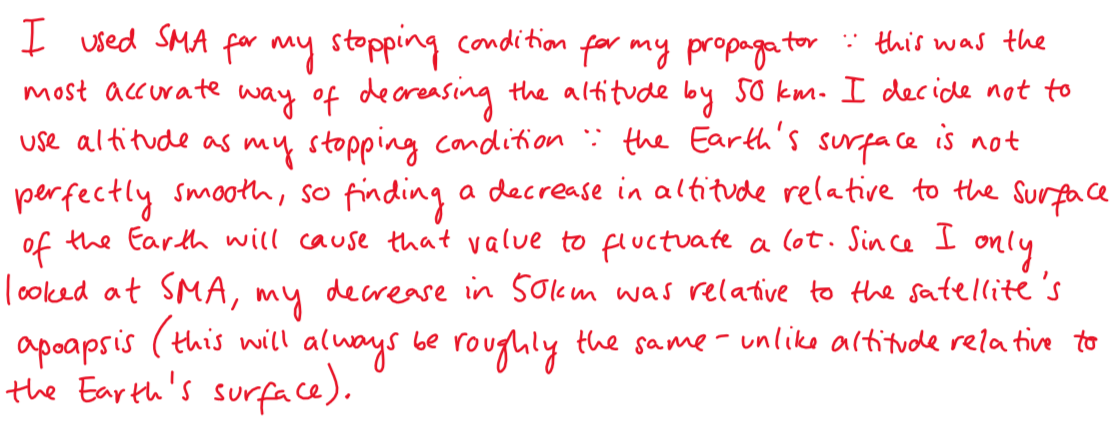 I used SMA for my stopping condition for my propagator ∵ this was the
most accurate way of decreasing the altitude by 50 km. I decide not to
use altitude as my stopping condition ∵ the Earth's surface is not
perfectly smooth, so finding a decrease in altitude relative to the surface
of the Earth will cause that value to fluctuate a lot. Since I only
looked at SMA, my decrease in 50km was relative to the satellite's
apoapsis (this will always be roughly the same - unlike altitude relative to
the Earth's surface).